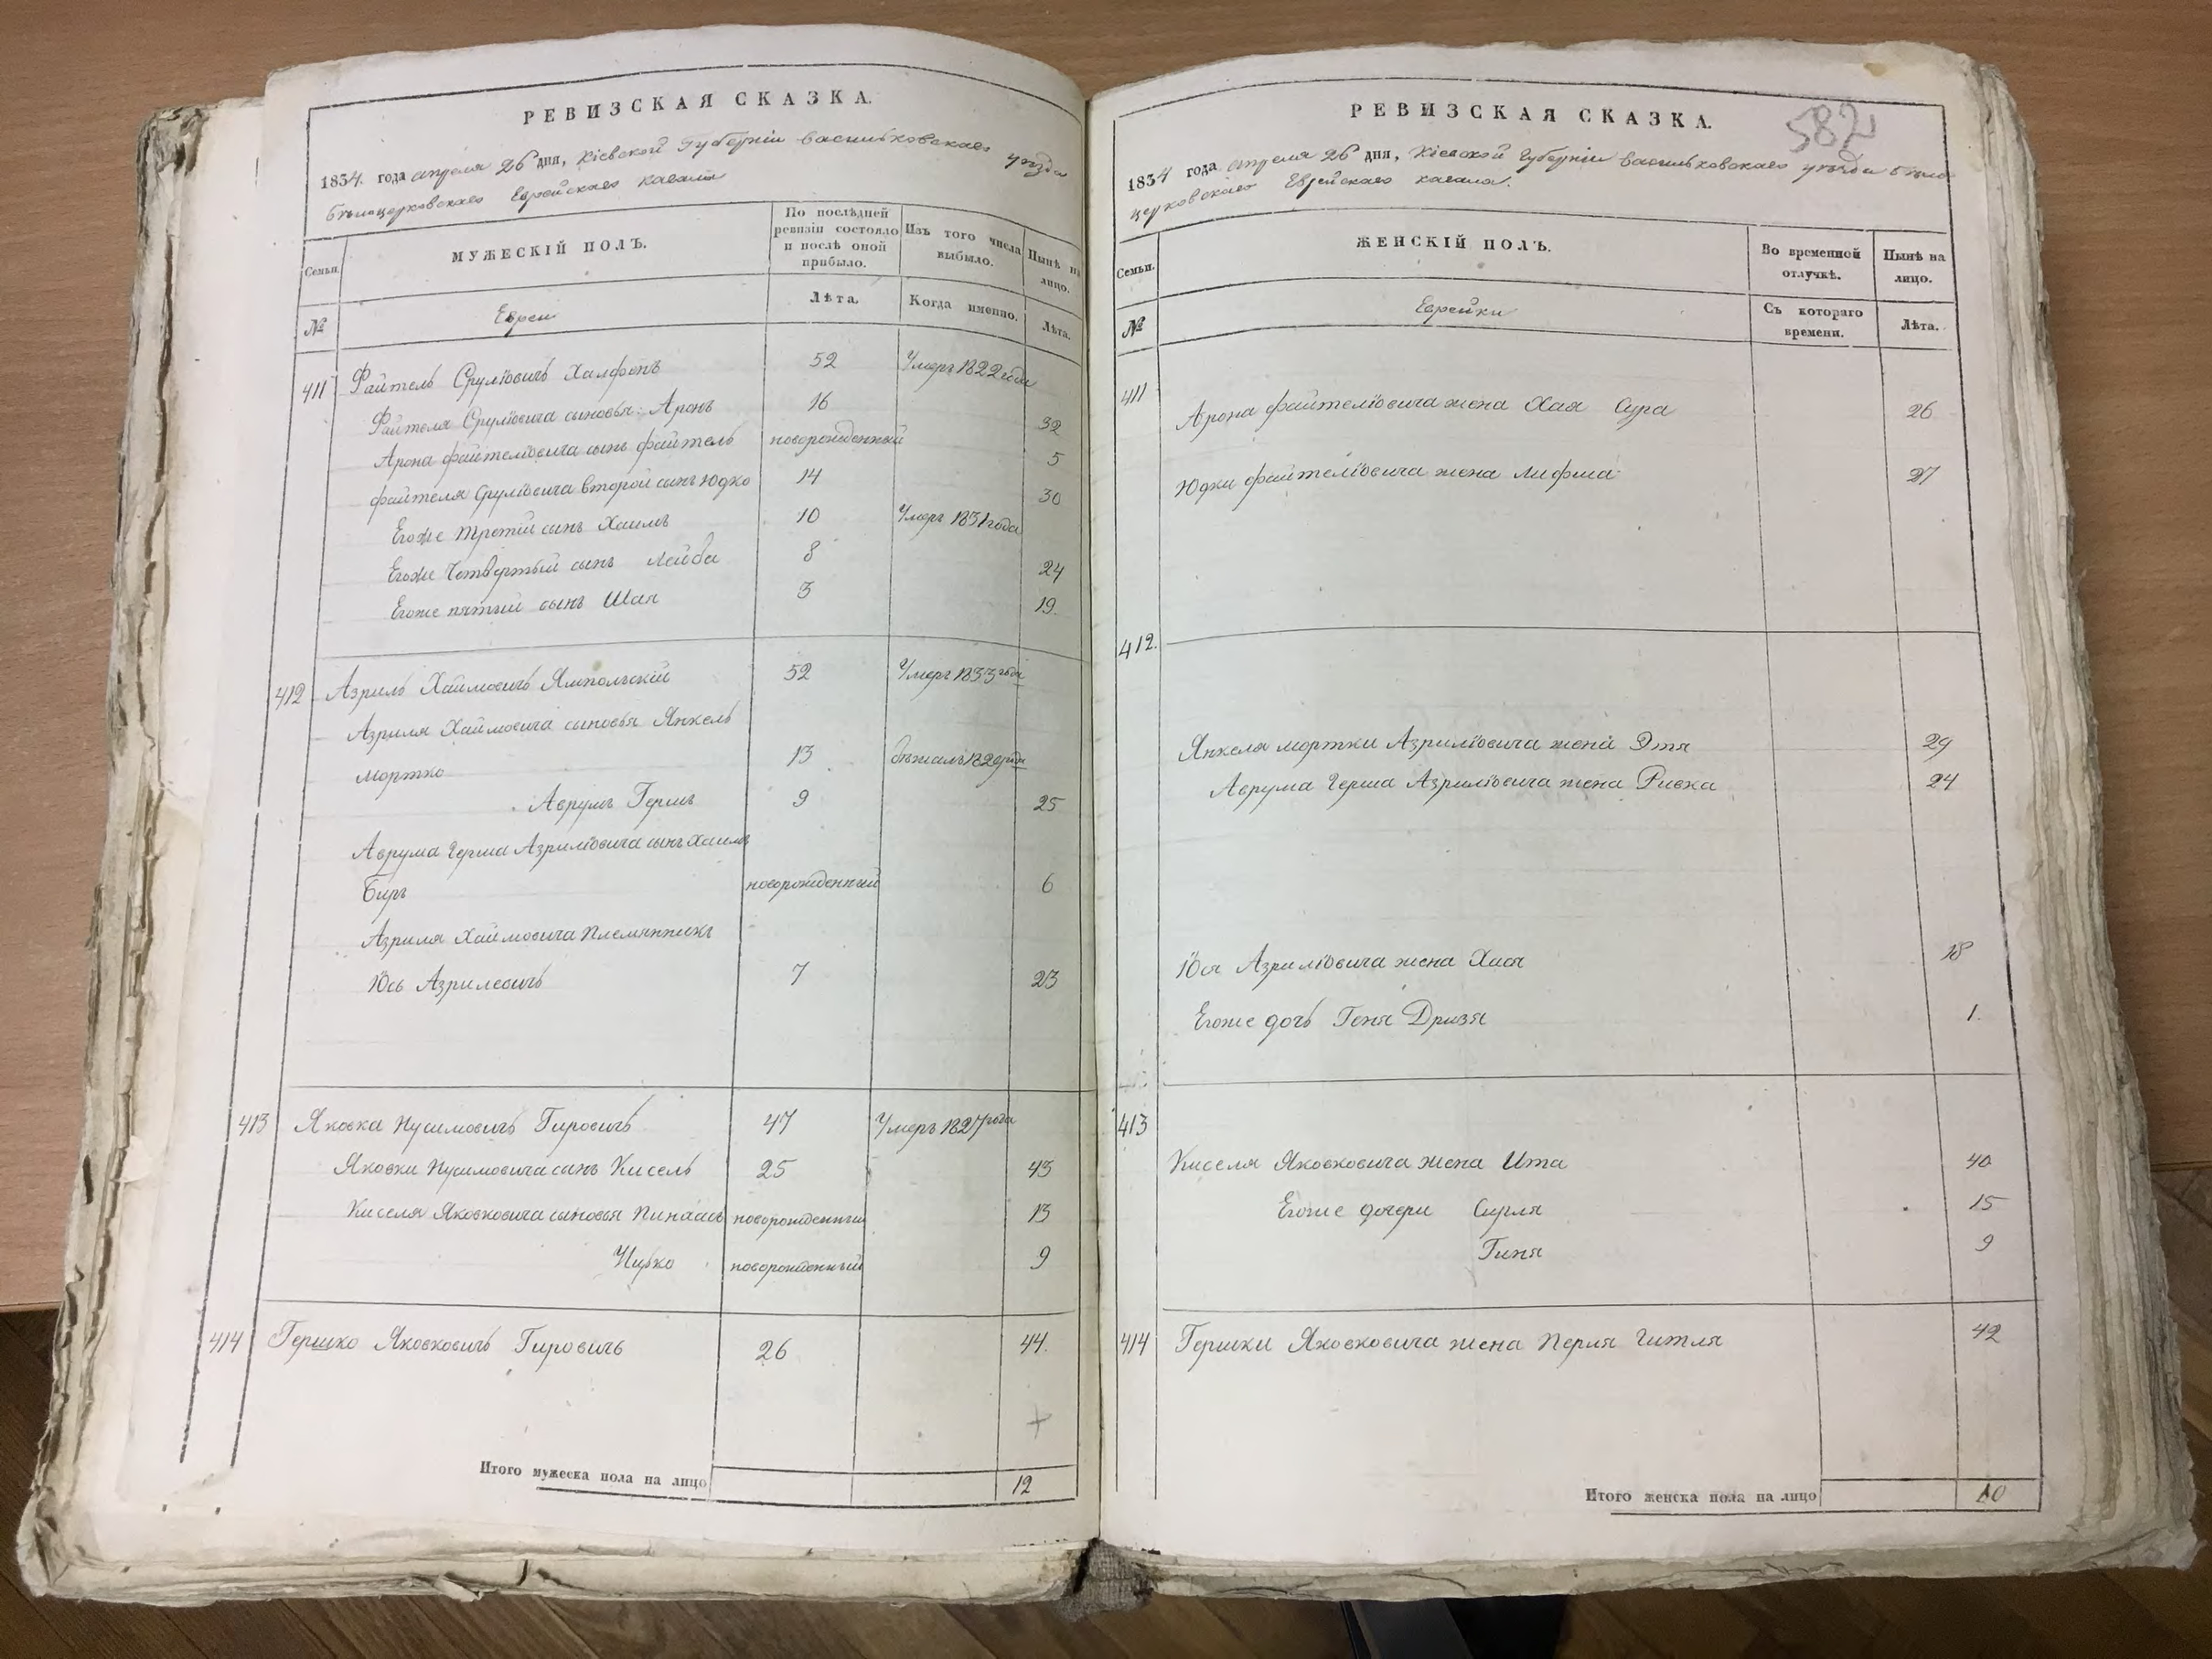 РЕВИЗСКАЯ СКАЗКА.
1834. года апреля 26 дня, Кіевской Губерніи Васильковскаго уѣзда
Бѣлоцерковскаго Еврейскаго Кагала
Семьи.
МУЖЕСКІЙ ПОЛЪ.
По послѣдней ревизіи состояло и послѣ оной прибыло.
Изъ того числа выбыло.
Нынѣ на лицо.
№
Евреи
Лѣта.
Когда именно.
Лѣта.
411 Файтель Сруліовичъ Халфонъ 52 Умеръ 1822 года
Файтеля Сруліовича сыновья: Аронъ 16 32
Арона Файтеліовича сынъ Файтель новорожденный 5
Файтеля Сруліовича второй сынъ Юдко 14 30
Егоже третій сынъ Хаимъ 10 Умеръ 1831 года
Егоже Четвертый сынъ Лейба 8 24
Егоже пятый сынъ Шая 3 19.
412 Азриль Хаймовичъ Ямпольскій 52 Умеръ 1833 года
Азриля Хаймовича сыновья Янкель
Мортко 13 бѣжалъ 1829 года
Аврумъ Гершъ 9 25
Аврума Герша Азриліовича сынъ Хаимъ
Беръ новорожденный 6
Азриля Хаймовича Племянникъ
Юсь Азрилевичъ 7 23
413 Яковка Нусимовичъ Гировичъ 47 Умеръ 1827 года
Яковки Нусимовича сынъ Кисель 25 43
Киселя Яковковича сыновья Пинаасъ новорожденный 13
Ицко новорожденный 9
414 Гершко Яковковичъ Гировичъ 26 44.
Итого мужеска пола на лицо 12
582
РЕВИЗСКАЯ СКАЗКА.
1834 года апреля 26 дня, Кіевской Губерніи Васильковскаго уѣзда Бѣло
церковскаго Еврейскаго кагала.
Семьи.
ЖЕНСКІЙ ПОЛЪ.
Во временной отлучкѣ.
Нынѣ на лицо.
№
Еврейки
Съ котораго времени.
Лѣта.
411 Арона Файтеліовича жена Хая Сура 26
Юдки Файтеліовича жена Лифша 27
412.
Янкеля Мортки Азриліовича жена Этя 29
Аврума Герша Азриліовича жена Ривка 24
Юся Азриліовича жена Хася 18
Егоже дочь Геня Дризя 1.
413
Киселя Яковковича жена Ита 40
Егоже дочери Сирля 15
Гиня 9
414 Гершки Яковковича жена Перля Гитля 42
Итого женска пола на лицо 10